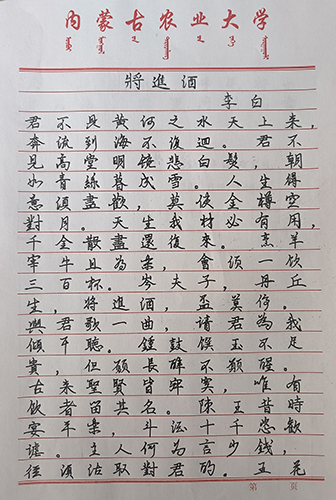 内蒙古农业大学
將進酒
李白
君不見黄河之水天上来，
奔流到海不復迴。君不
見高堂明镜悲白髮，朝
如青絲暮成雪。人生得
意須盡歡，莫使金樽空
對月。天生我材必有用，
千金散盡還復来。烹羊
宰牛且為樂，會須一飲
三百杯。岑夫子，丹丘
生，將進酒，盃莫停。
與君歌一曲，请君為我
傾耳聽。鍾鼓饌玉不足
貴，但願長醉不願醒。
古来聖賢皆寂寞，唯有
飲者留其名。陳王昔時
宴平樂，斗酒十千恣歡
謔。主人何為言少錢，
徑須沽取對君酌。五花
第 页